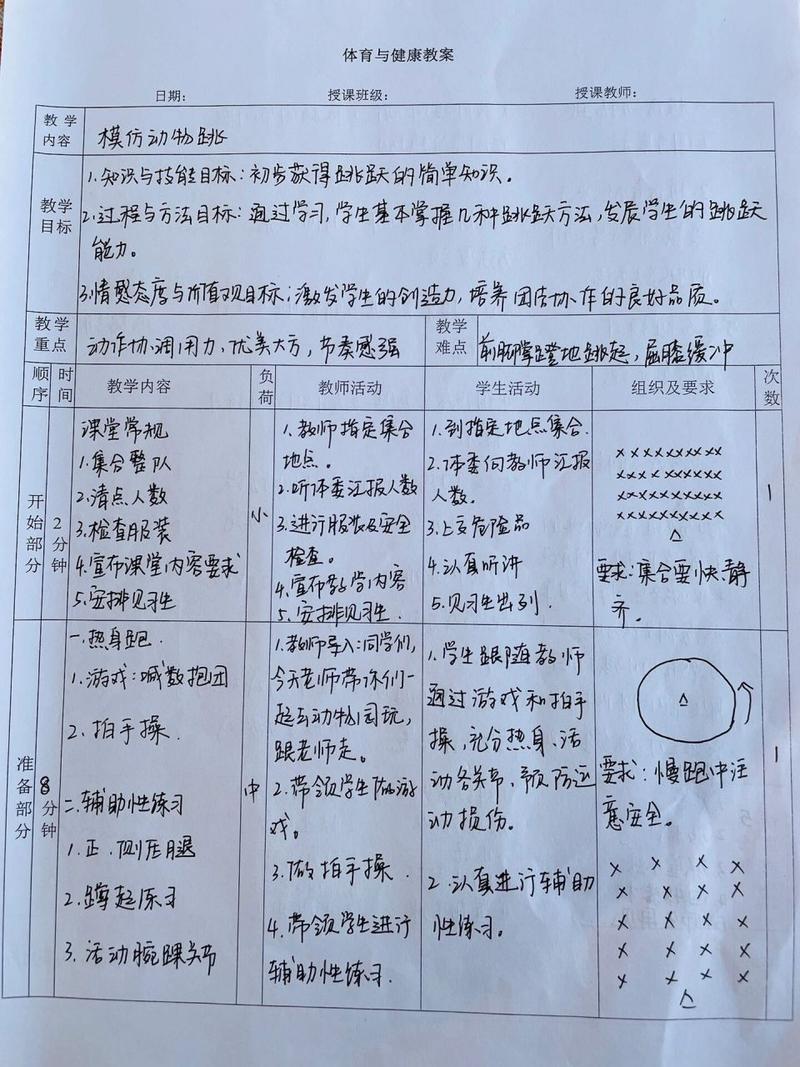 体育与健康教案
日期： 授课班级： 授课教师：
教学内容
模仿动物跳
教学目标
1.知识与技能目标：初步获得跳跃的简单知识。
2.过程与方法目标：通过学习，学生基本掌握几种跳跃方法，发展学生的跳跃
能力。
3.情感态度与价值观目标：激发学生的创造力，培养团结协作的良好品质。
教学重点
动作协调用力，优美大方，节奏感强
教学难点
前脚掌蹬地跳起，屈膝缓冲
顺序 时间 教学内容 负荷 教师活动 学生活动 组织及要求 次数
开始部分
2分钟
课堂常规
1.集合整队
2.清点人数
3.检查服装
4.宣布课堂内容要求
5.安排见习生
小
1.教师指定集合
地点。
2.听体委汇报人数
3.进行服装及安全
检查。
4.宣布教学内容
5.安排见习生.
1.到指定地点集合.
2.体委向教师汇报
人数。
3.上交危险品
4.认真听讲
5.见习生出列.
×××××××××
×××××××××
×××××××××
×××××××××
△
要求：集合要快、静
齐。
1
准备部分
8分钟
一.热身跑.
1.游戏：喊数抱团
2.拍手操.
二.辅助性练习
1.正、侧压腿
2.蹲起练习
3.活动腕踝关节
中
1.教师导入：同学们,
今天老师带你们一
起去动物园玩，
跟老师走。
2.带领学生做游
戏。
3.做拍手操.
4.带领学生进行
辅助性练习.
1.学生跟随教师
通过游戏和拍手
操，充分热身、活
动各关节，预防运
动损伤。
2.认真进行辅助
性练习。
△
要求：慢跑中注
意安全。
× × × ×
× × × ×
× × × ×
× × × ×
× × × ×
△
1